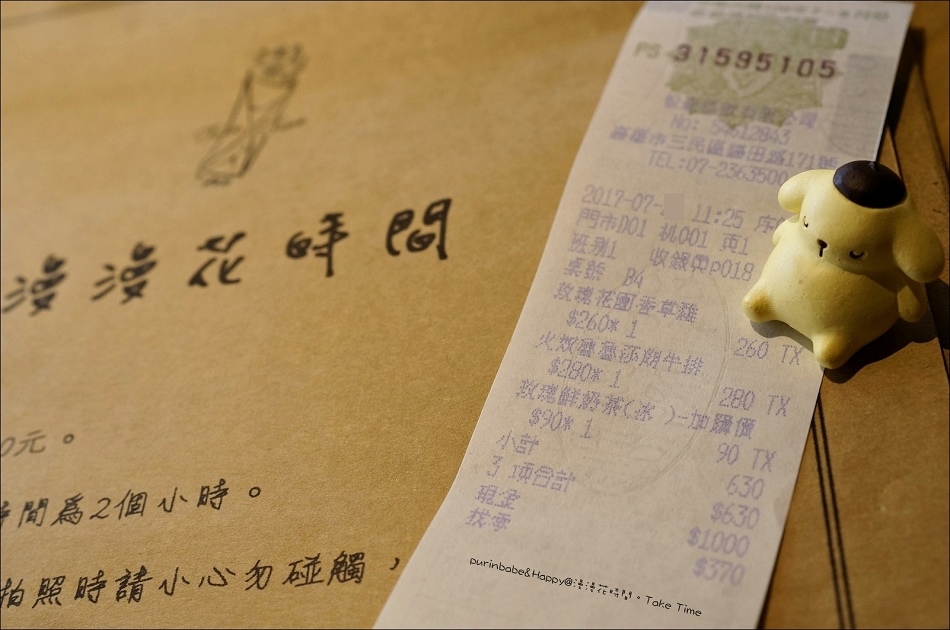 漫漫花時間
0元。
時間為2個小時。
拍照時請小心勿碰觸，
PS 31595105
高雄市三民區
TEL:07-2363500
2017-07- 11:25
門市D01 机001 頁1
班別1 收銀員p018
桌號 B4
玫瑰花園香草雞
$260* 1
260 TX
莎朗牛排
$280* 1
280 TX
玫瑰鮮奶茶(冰 )-加購價
$90* 1
90 TX
小計
630
3 項合計
$630
現金
$1000
找零
$370
purinbabe&Happy@漫漫花時間。Take Time